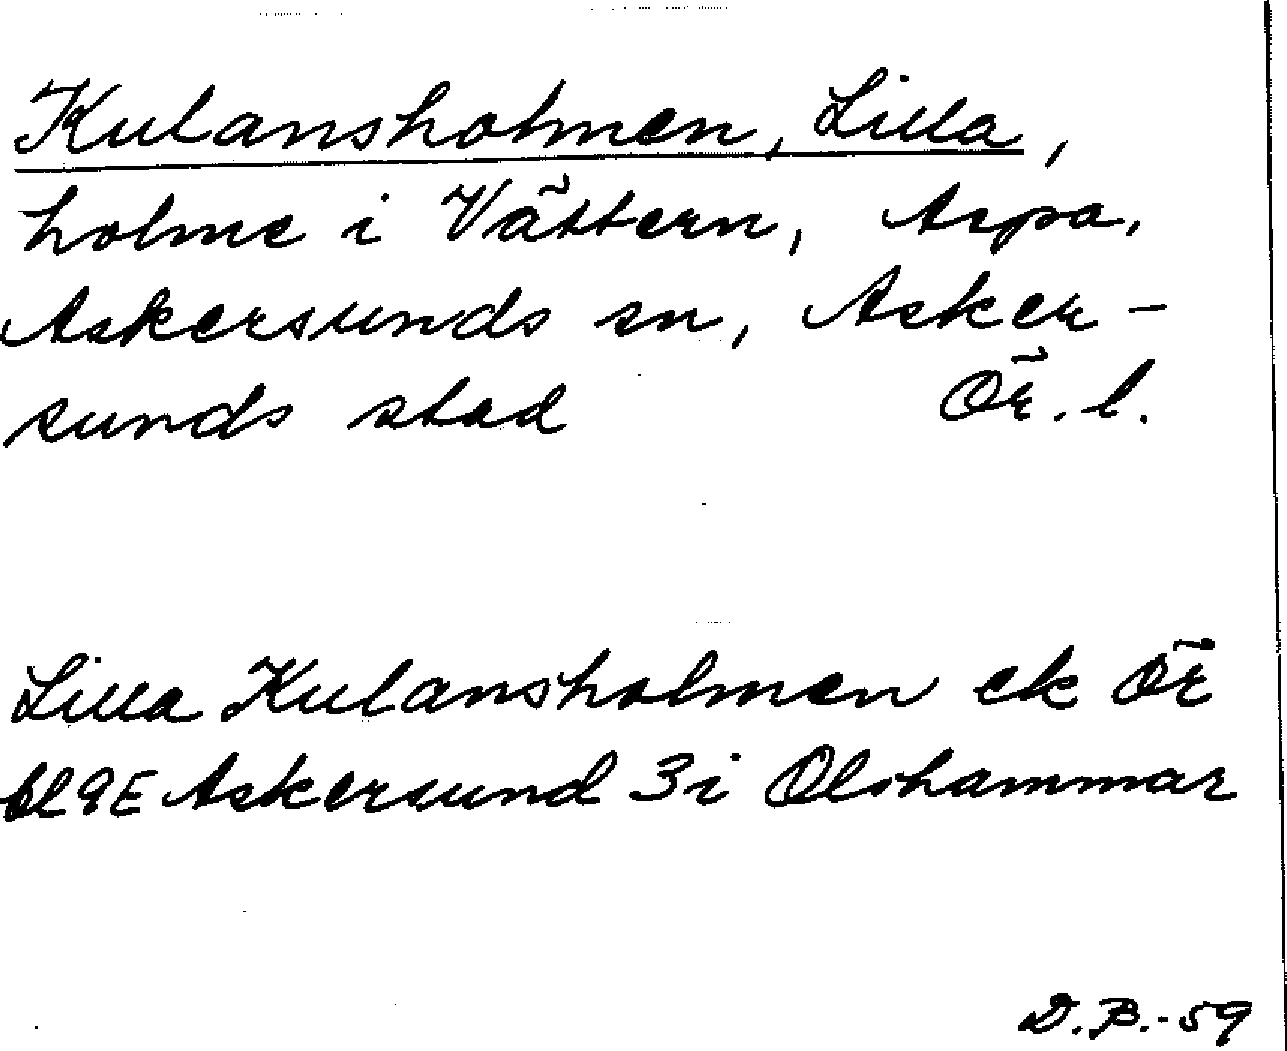 Kulansholmen, Lilla,
holme i Vättern, Aspa,
Askersunds sn, Asker-
sunds stad Ör. l.
Lilla Kulansholmen ek Ör
bl 9E Askersund 3i Olshammar
D.B.-59